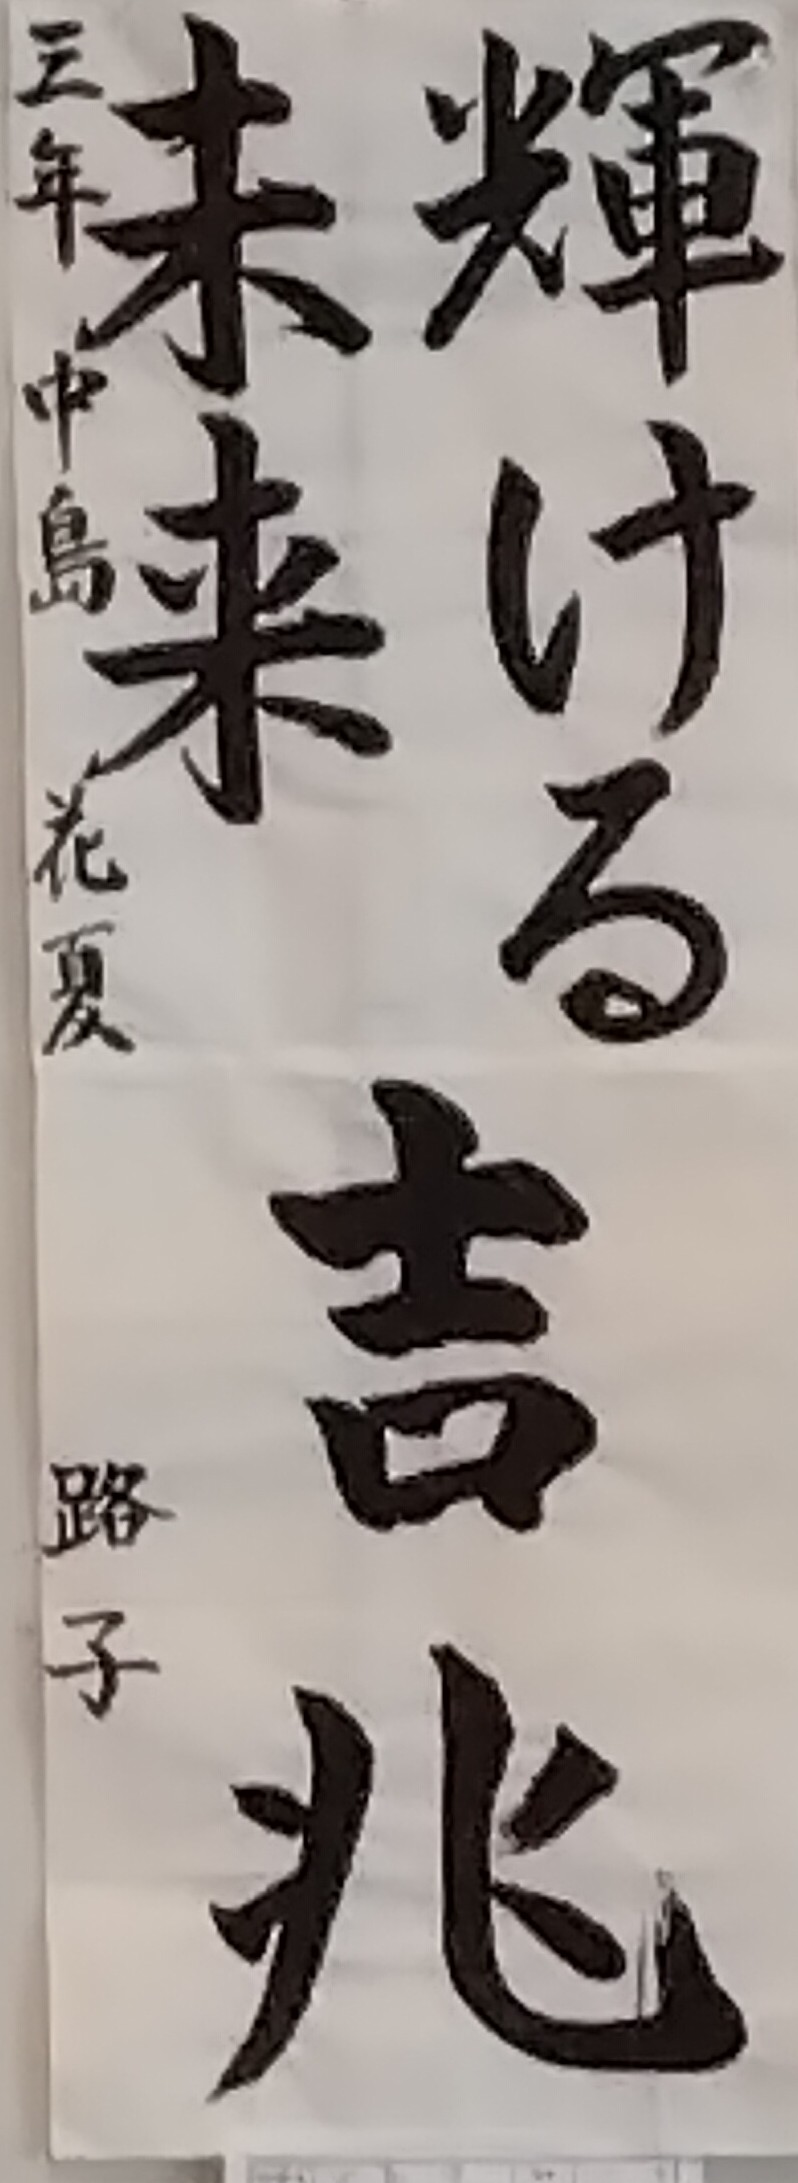 輝ける
未来
吉兆
三年 中島 花夏
路子